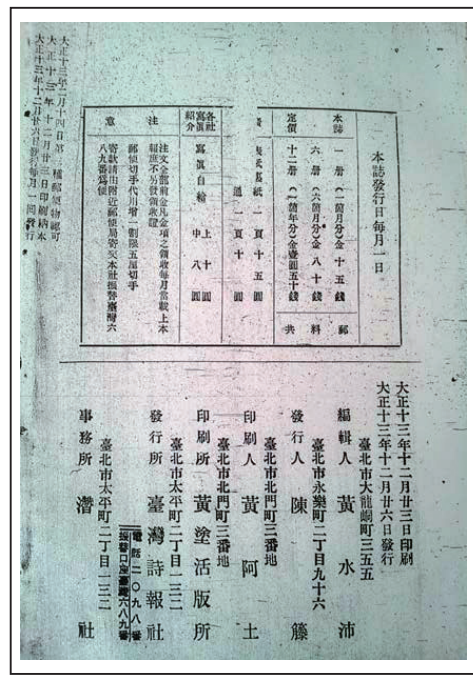 本誌發行日每月一日
本誌
定價
一冊(一箇月分)金十五錢
六冊(六箇月分)金八十錢
十二冊(一箇年分)金壹圓五十錢
郵料共
一頁十五圓
通一頁十圓
各社寫眞紹介
寫眞自給
上十圓
中八圓
注意
注文金額前金凡金項之領收每月當載上本
報庶不另發領收證
郵便切手代用增一割限五厘切手
寄款請由附近郵便局寄交本社振替臺灣六
八九番爲便
大正十三年二月十四日第三種郵便物認可
大正十三年十二月廿三日印刷納本
大正十三年十二月廿六日發行每月一回發行
大正十三年十二月廿三日印刷
大正十三年十二月廿六日發行
臺北市大龍峒町三五五
編輯人 黃水沛
臺北市永樂町二丁目九十六
發行人 陳籐
臺北市北門町三番地
印刷人 黃阿土
臺北市北門町三番地
印刷所 黃塗活版所
臺北市太平町二丁目一三二
發行所 臺灣詩報社
電話二〇九八番
振替口座臺灣六八九番
臺北市太平町二丁目一三二
事務所 潛社